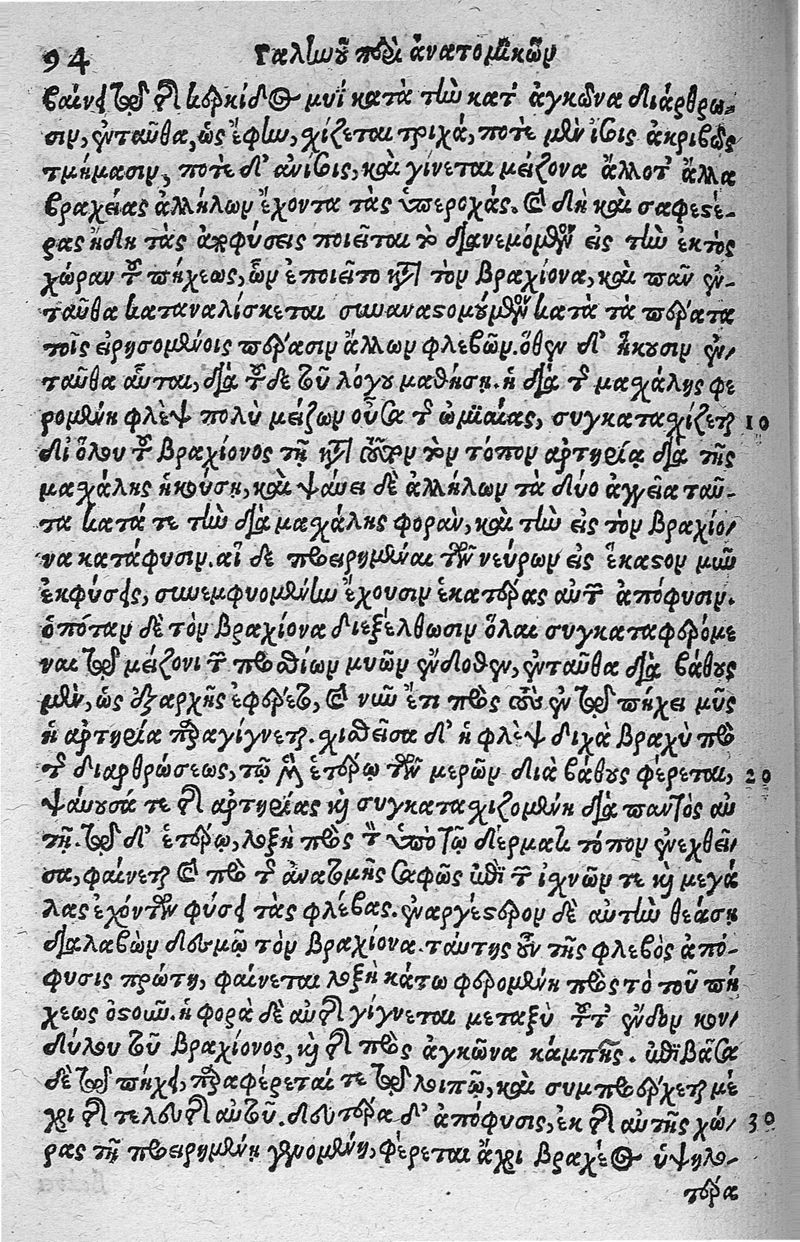 94 Γαλίωοῦ περὶ ἀνατομικῶν
βαίνει τῷ τῆς κερκίδος μυῒ κατὰ τὴν κατ' ἀγκῶνα διάρθρω-
σιν, ἐνταῦθα, ὡς ἔφην, σχίζεται τριχά, ποτὲ μὲν ἴσοις ἀκριβῶς
τμήμασιν, ποτὲ δ' ἀνίσοις, καὶ γίνεται μείζονα ἄλλοτ' ἄλλα
βραχείας ἀλλήλων ἔχοντα τὰς ὑπεροχάς. καὶ δὴ καὶ σαφεστέ-
ρας ἤδη τὰς ἀποφύσεις ποιεῖται τὸ διανεμόμενον εἰς τὴν ἐκτὸς
χώραν τοῦ πήχεως, ὧν ἐποιεῖτο κατὰ τὸν βραχίονα, καὶ πᾶν ἐν-
ταῦθα καταναλίσκεται συναναστομούμενον κατὰ τὰ πέρατα
τοῖς εἰρησομένοις πέρασιν ἄλλων φλεβῶν. ὅθεν δ' ἥκουσιν ἐν-
ταῦθα αὗται, διὰ τοῦδε τοῦ λόγου μαθήσῃ. ἡ διὰ τῆς μασχάλης φε
ρομένη φλὲψ πολὺ μείζων οὖσα τῆς ὠμιαίας, συγκατασχίζεται 10
δι' ὅλου τοῦ βραχίονος τῇ κατὰ τοῦτον τὸν τόπον ἀρτηρίᾳ διὰ τῆς
μασχάλης ἡκούσῃ, καὶ ψάυει δὲ ἀλλήλων τὰ δύο ἀγγεῖα ταῦ-
τα κατά τε τὴν διὰ μασχάλης φορὰν, καὶ τὴν εἰς τὸν βραχίο-
να κατάφυσιν. αἱ δὲ προειρημέναι τῶν νεύρων εἰς ἕκαστον μυῶν
ἐκφύσεις, συνεμφυομένην ἔχουσιν ἑκατέρας αὐτῶν ἀπόφυσιν.
ὁπόταν δὲ τὸν βραχίονα διεξέλθωσιν ὅλαι συγκαταφερόμε
ναι τῷ μείζονι τῶν προσθίων μυῶν ἔνδοθεν, ἐνταῦθα διὰ βάθους
μὲν, ὡς ἐξαρχῆς ἐφέρετο, καὶ νῦν ἔτι πρὸς τοὺς ἐν τῷ πήχει μῦς
ἡ ἀρτηρία παραγίγνεται. σχισθεῖσα δ' ἡ φλὲψ διχὰ βραχὺ πρὸ
τῆς διαρθρώσεως, τῷ μὲν ἑτέρῳ τῶν μερῶν διὰ βάθους φέρεται, 20
ψάυουσά τε τῆς ἀρτηρίας καὶ συγκατασχιζομένη διὰ παντὸς αὐ
τῇ. τῷ δ' ἑτέρῳ, λοξὴ πρὸς τὸν ὑπὸ τῷ δέρματι τόπον ἐνεχθεῖ-
σα, φαίνεται καὶ πρὸ τῆς ἀνατομῆς σαφῶς ἐπὶ τῶν ἰσχνῶν τε καὶ μεγά
λας ἐχόντων φύσει τὰς φλέβας. ἐναργέστερον δὲ αὐτὴν θεάσῃ
διαλαβὼν δεσμῷ τὸν βραχίονα. ταύτης οὖν τῆς φλεβὸς ἀπό-
φυσις πρώτη, φαίνεται λοξὴ κάτω φερομένη πρὸς τὸ τοῦ πή
χεως ὀστοῦν. ἡ φορὰ δὲ αὐτῆς γίγνεται μεταξὺ τοῦ τ' ἔνδον κον-
δύλου τοῦ βραχίονος, καὶ τῆς πρὸς ἀγκῶνα κάμπης. ἐπιβᾶσα
δὲ τῷ πήχει, παραφέρεταί τε τῷ λοιπῷ, καὶ συμπροέρχεται μέ
χρι τῆς τελευτῆς αὐτοῦ. δευτέρα δ' ἀπόφυσις, ἐκ τῆς αὐτῆς χώ- 30
ρας τῇ προειρημένῃ γενομένη, φέρεται ἄχρι βραχέος ὑψηλο-
τέρα